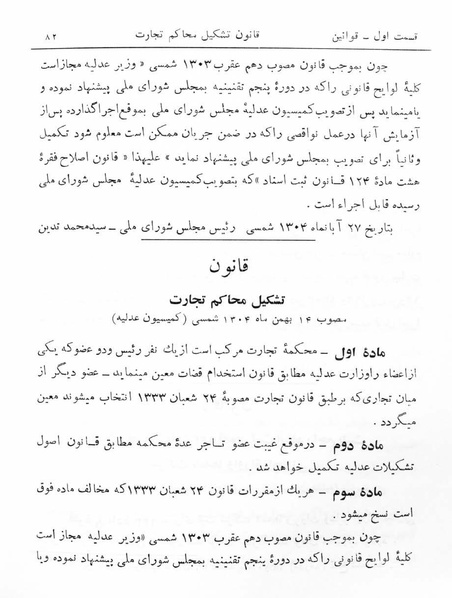 قسمت اول ـ قوانین
قانون تشکیل محاکم تجارت
۸۲
چون بموجب قانون مصوب دهم عقرب ۱۳۰۳ شمسی « وزیر عدلیه مجاز است
کلیهٔ لوایح قانونی را که در دورهٔ پنجم تقنینیه بمجلس شورای ملی پیشنهاد نموده و
یا مینماید پس از تصویب کمیسیون عدلیهٔ مجلس شورای ملی بموقع اجرا گذارده پس از
آزمایش آنها در عمل نواقصی را که در ضمن جریان ممکن است معلوم شود تکمیل
و ثانیاً برای تصویب بمجلس شورای ملی پیشنهاد نماید » علیهذا « قانون اصلاح فقرهٔ
هشت مادهٔ ۱۲۴ قانون ثبت اسناد » که بتصویب کمیسیون عدلیهٔ مجلس شورای ملی
رسیده قابل اجراء است .
بتاریخ ۲۷ آبانماه ۱۳۰۴ شمسی رئیس مجلس شورای ملی ـ سیدمحمد تدین
قانون
تشکیل محاکم تجارت
مصوب ۱۴ بهمن ماه ۱۳۰۴ شمسی (کمیسیون عدلیه)
مادهٔ اول ـ محکمهٔ تجارت مرکب است از یك نفر رئیس و دو عضو که یکی
از اعضاء را وزارت عدلیه مطابق قانون استخدام قضات معین مینماید ـ عضو دیگر از
میان تجاری که برطبق قانون تجارت مصوبهٔ ۲۴ شعبان ۱۳۳۳ انتخاب میشوند معین
میگردد .
مادهٔ دوم ـ در موقع غیبت عضو تاجر عدهٔ محکمه مطابق قانون اصول
تشکیلات عدلیه تکمیل خواهد شد .
مادهٔ سوم ـ هر یك از مقررات قانون ۲۴ شعبان ۱۳۳۳ که مخالف ماده فوق
است نسخ میشود .
چون بموجب قانون مصوب دهم عقرب ۱۳۰۳ شمسی «وزیر عدلیه مجاز است
کلیهٔ لوایح قانونی را که در دورهٔ پنجم تقنینیه بمجلس شورای ملی پیشنهاد نموده ویا